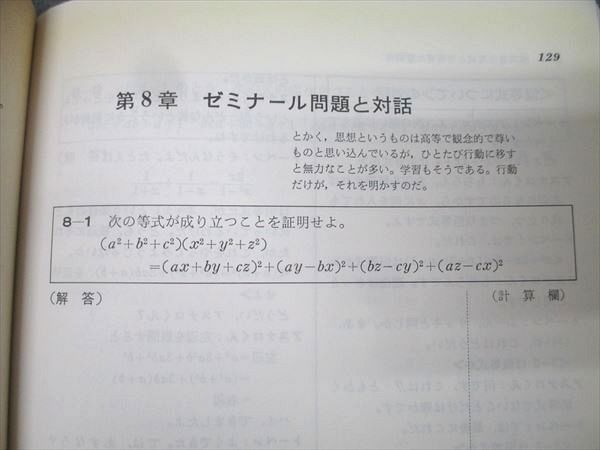 129
第8章 ゼミナール問題と対話
とかく，思想というものは高等で観念的で尊い
ものと思い込んでいるが，ひとたび行動に移す
と無力なことが多い。学習もそうである。行動
だけが，それを明かすのだ。
8-1 次の等式が成り立つことを証明せよ。
(a²+b²+c²)(x²+y²+z²)
=(ax+by+cz)²+(ay−bx)²+(bz−cy)²+(az−cx)²
(解 答)
(計 算 欄)